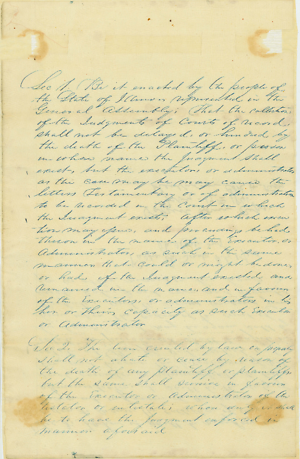 Sec 1 Be it enacted by the people of
the State of Illinois represented in the
General Assembly: That the collection
of the Judgments of Courts of record
shall not be delayed or hindred by
the death of the Plaintiff or person
in whose name the Judgment shall
exist, but the executors or administrators
as the case may be may cause the
letters Testamentary or of administration
to be recorded in the Court in which
the Judgment exists, after which execu
tion may issue, and proceedings be had
thereon in the name of the Executor or
Administrator as such in the same
manner that could or might be done,
or had if the Judgment existed and
remained in the name and in favour
of the Executors or administrators in his
her or their capacity as such Executor
or Administrator
Sec 2. The lien created by law on property
shall not abate or cease by reason of
the death of any plaintiff or plaintiffs
but the same shall survive in favour
of the Executor or Administrator of the
testator or intestate whose
be to have the judgment enforced in
manner aforesaid